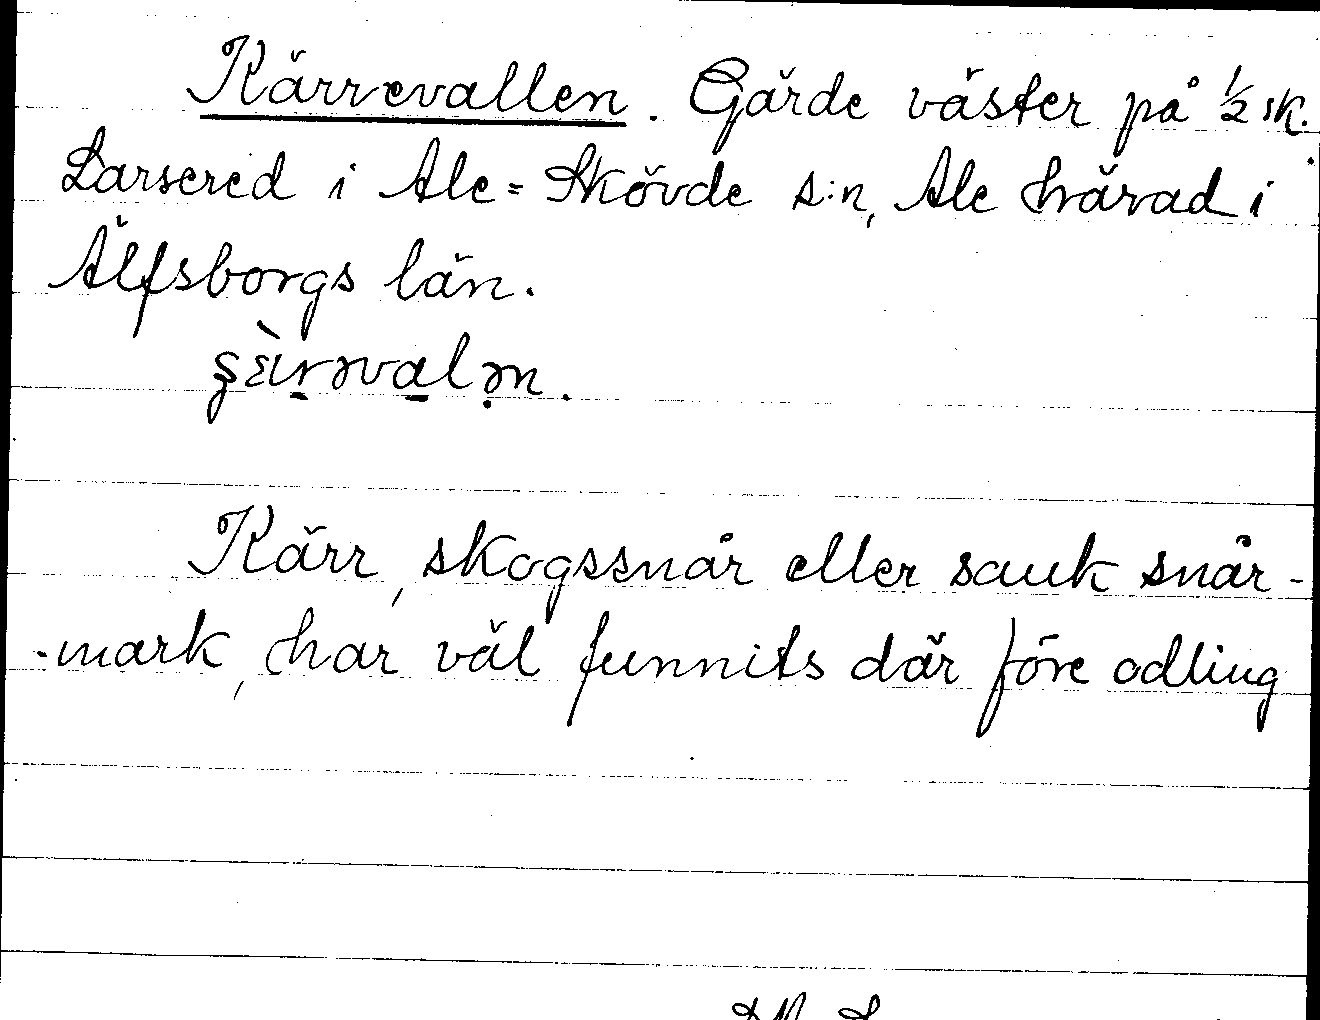 Kärrevallen. Gärde väster på ½ sk.
Larsered i Ale-Skövde s:n, Ale härad i
Älfsborgs län.
Kärr, skogssnår eller sank snår-
-mark, har väl funnits där före odling